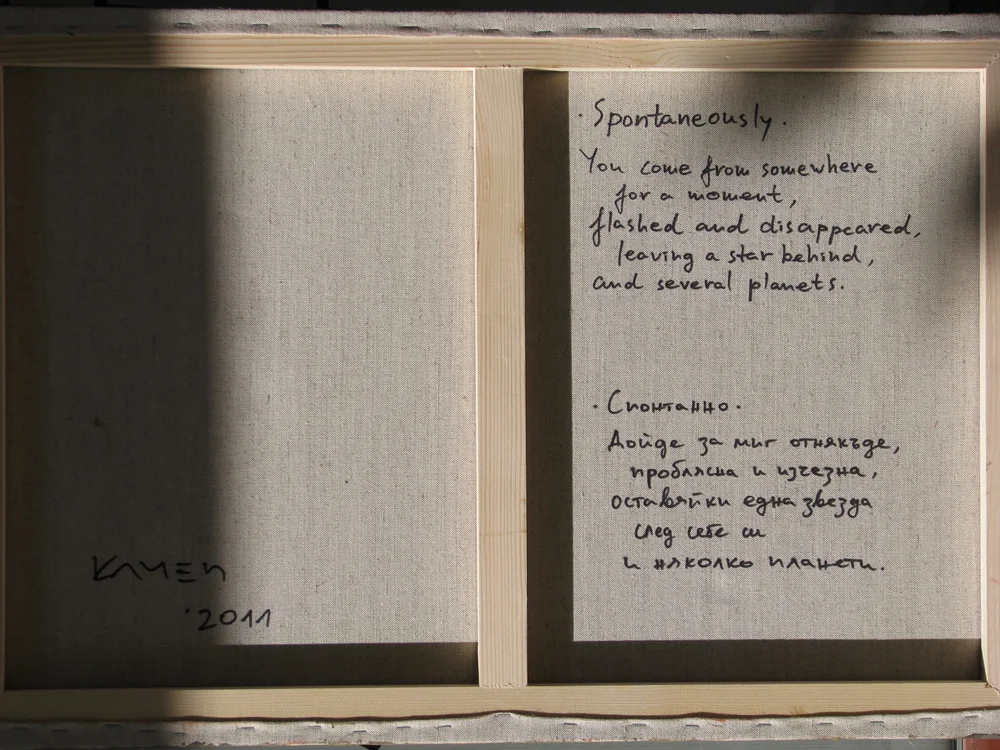 · Spontaneously.
You come from somewhere
for a moment,
flashed and disappeared,
leaving a star behind,
and several planets.
· Спонтанно.
Дойде за миг отнякъде,
проблясна и изчезна,
оставяйки една звезда
след себе си
и няколко планети.
КАМЕН
'2011